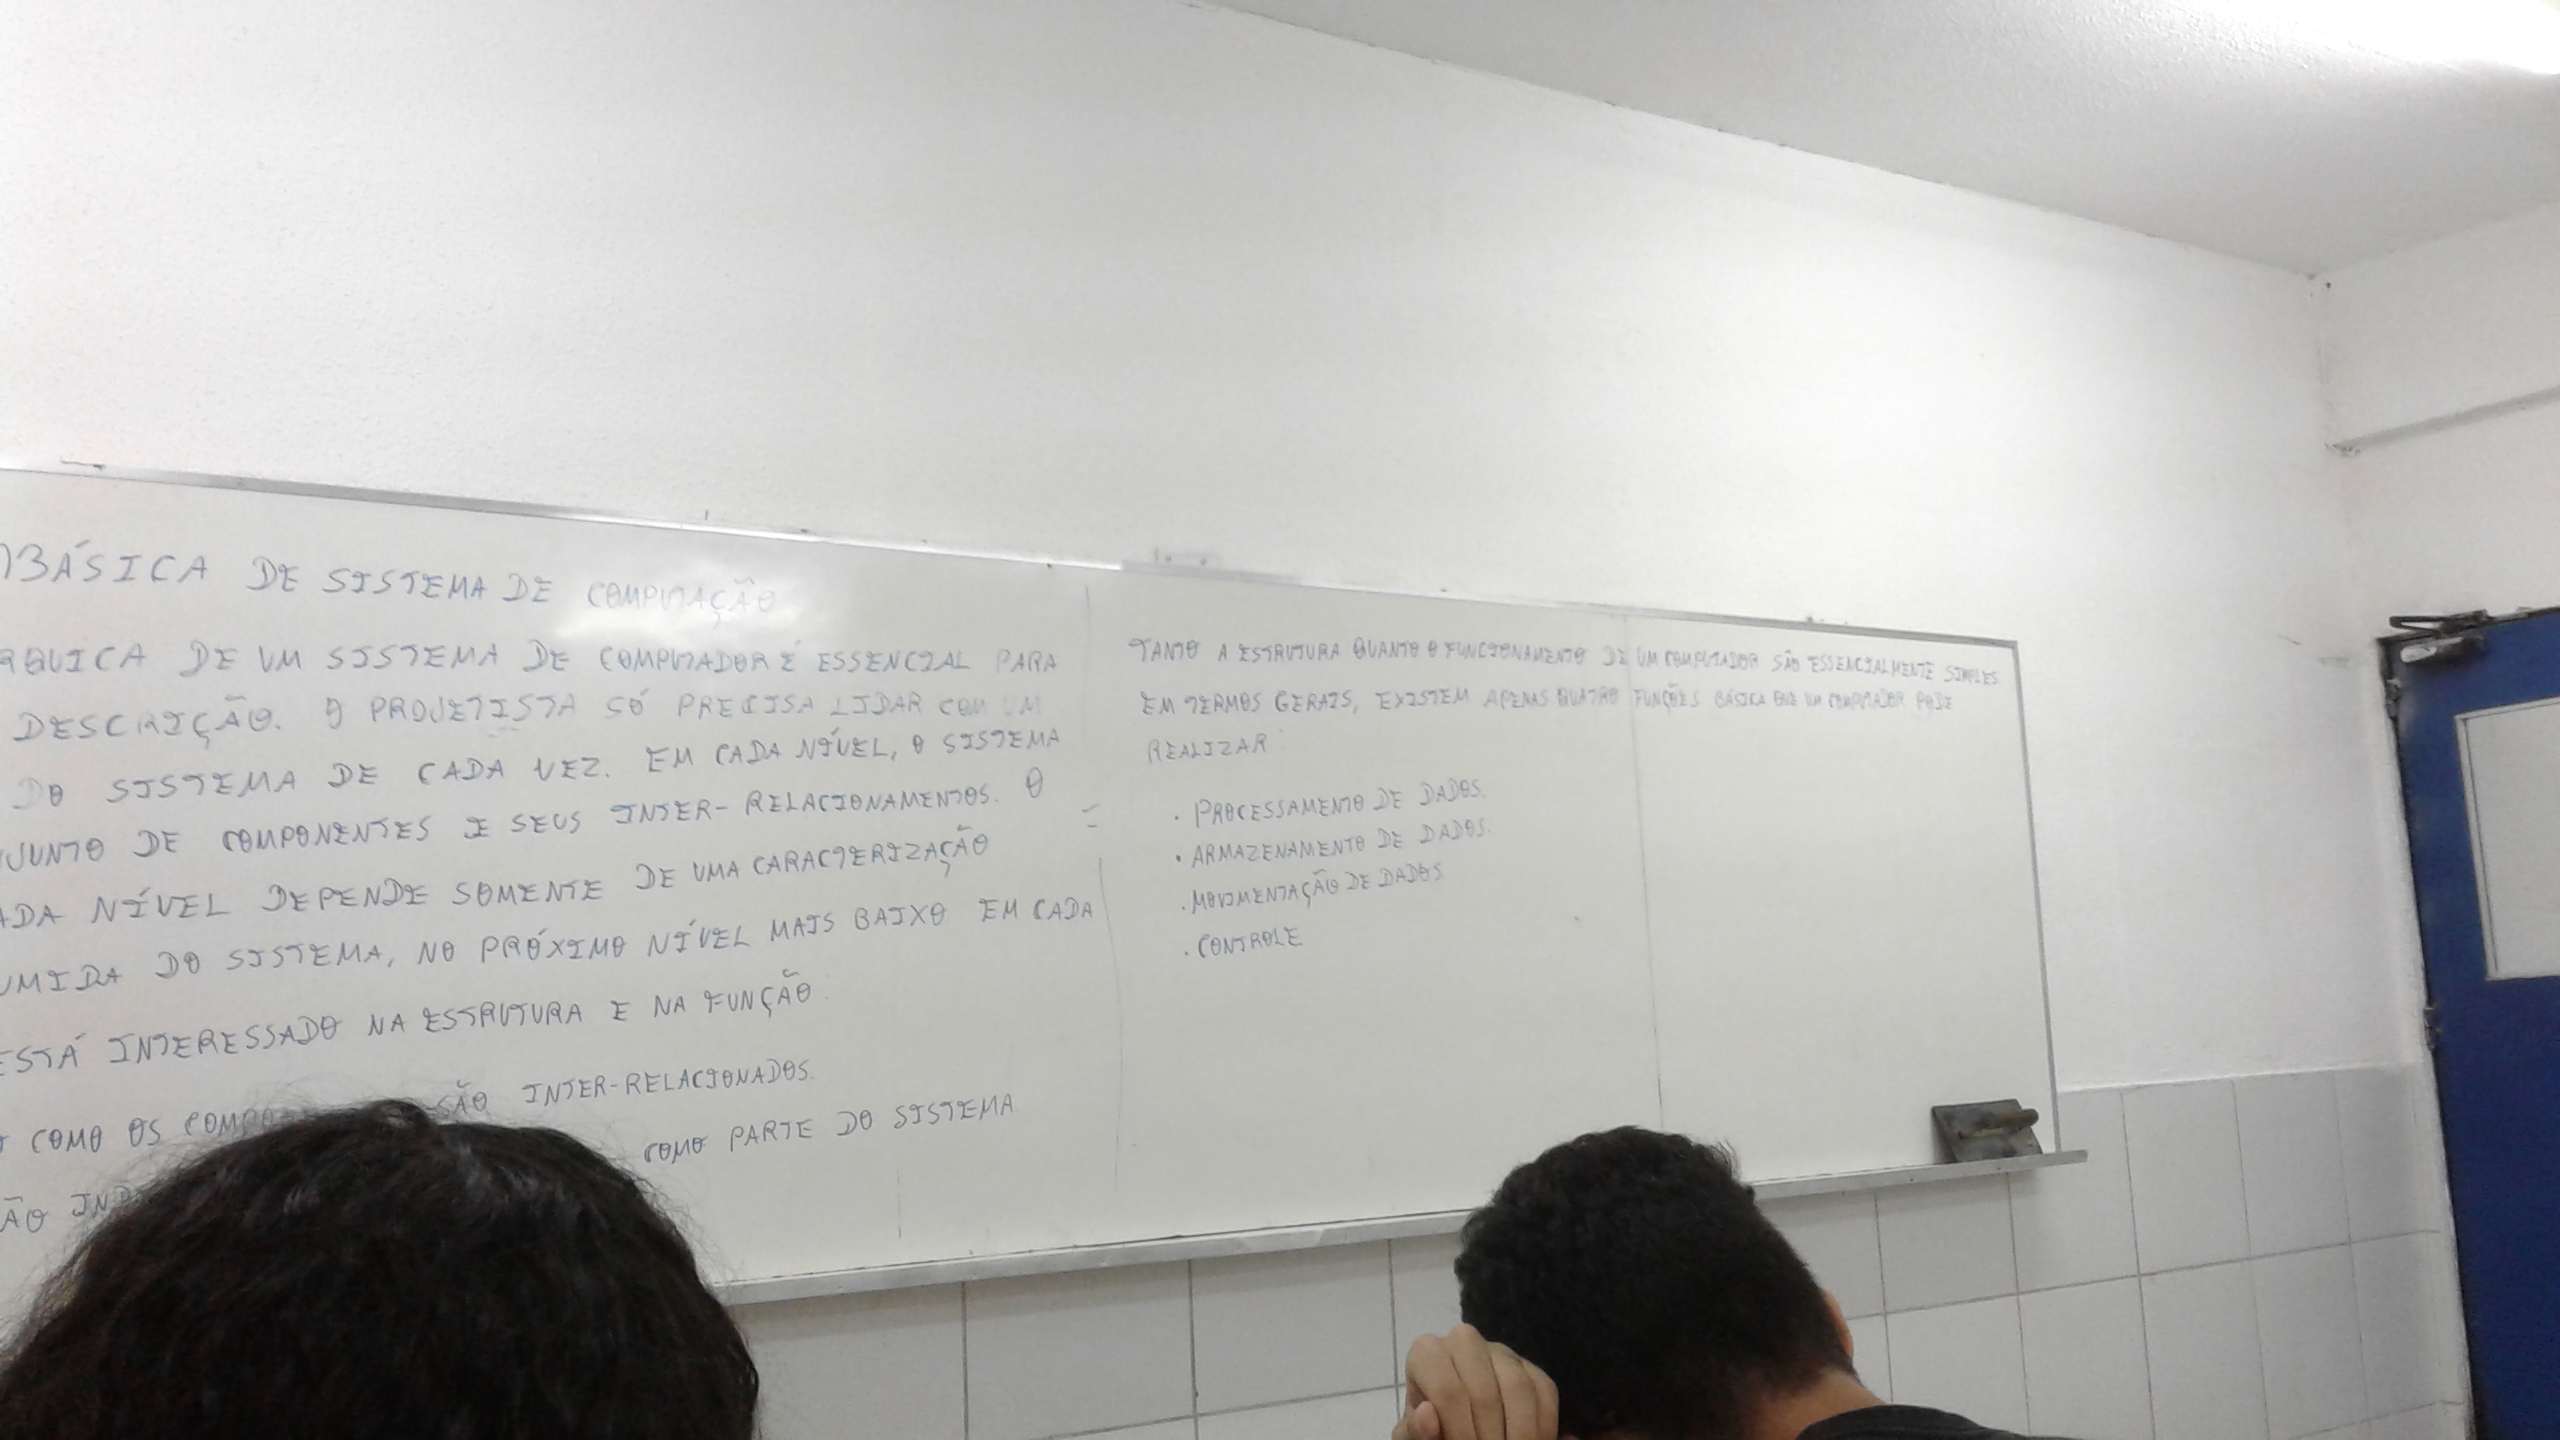 BÁSICA DE SISTEMA DE COMPUTAÇÃO
RQUICA DE UM SISTEMA DE COMPUTADOR É ESSENCIAL PARA
DESCRIÇÃO. O PROJETISTA SÓ PRECISA LIDAR COM UM
DO SISTEMA DE CADA VEZ. EM CADA NÍVEL, O SISTEMA
JUNTO DE COMPONENTES E SEUS INTER-RELACIONAMENTOS. O
ADA NÍVEL DEPENDE SOMENTE DE UMA CARACTERIZAÇÃO
UMIDA DO SISTEMA, NO PRÓXIMO NÍVEL MAIS BAIXO EM CADA
ESTÁ INTERESSADO NA ESTRUTURA E NA FUNÇÃO.
COMO OS COMPO SÃO INTER-RELACIONADOS.
ÃO IND COMO PARTE DO SISTEMA
TANTO A ESTRUTURA QUANTO O FUNCIONAMENTO DE UM COMPUTADOR SÃO ESSENCIALMENTE SIMPLES.
EM TERMOS GERAIS, EXISTEM APENAS QUATRO FUNÇÕES BÁSICA QUE UM COMPUTADOR PODE
REALIZAR:
• PROCESSAMENTO DE DADOS.
• ARMAZENAMENTO DE DADOS.
• MOVIMENTAÇÃO DE DADOS.
• CONTROLE